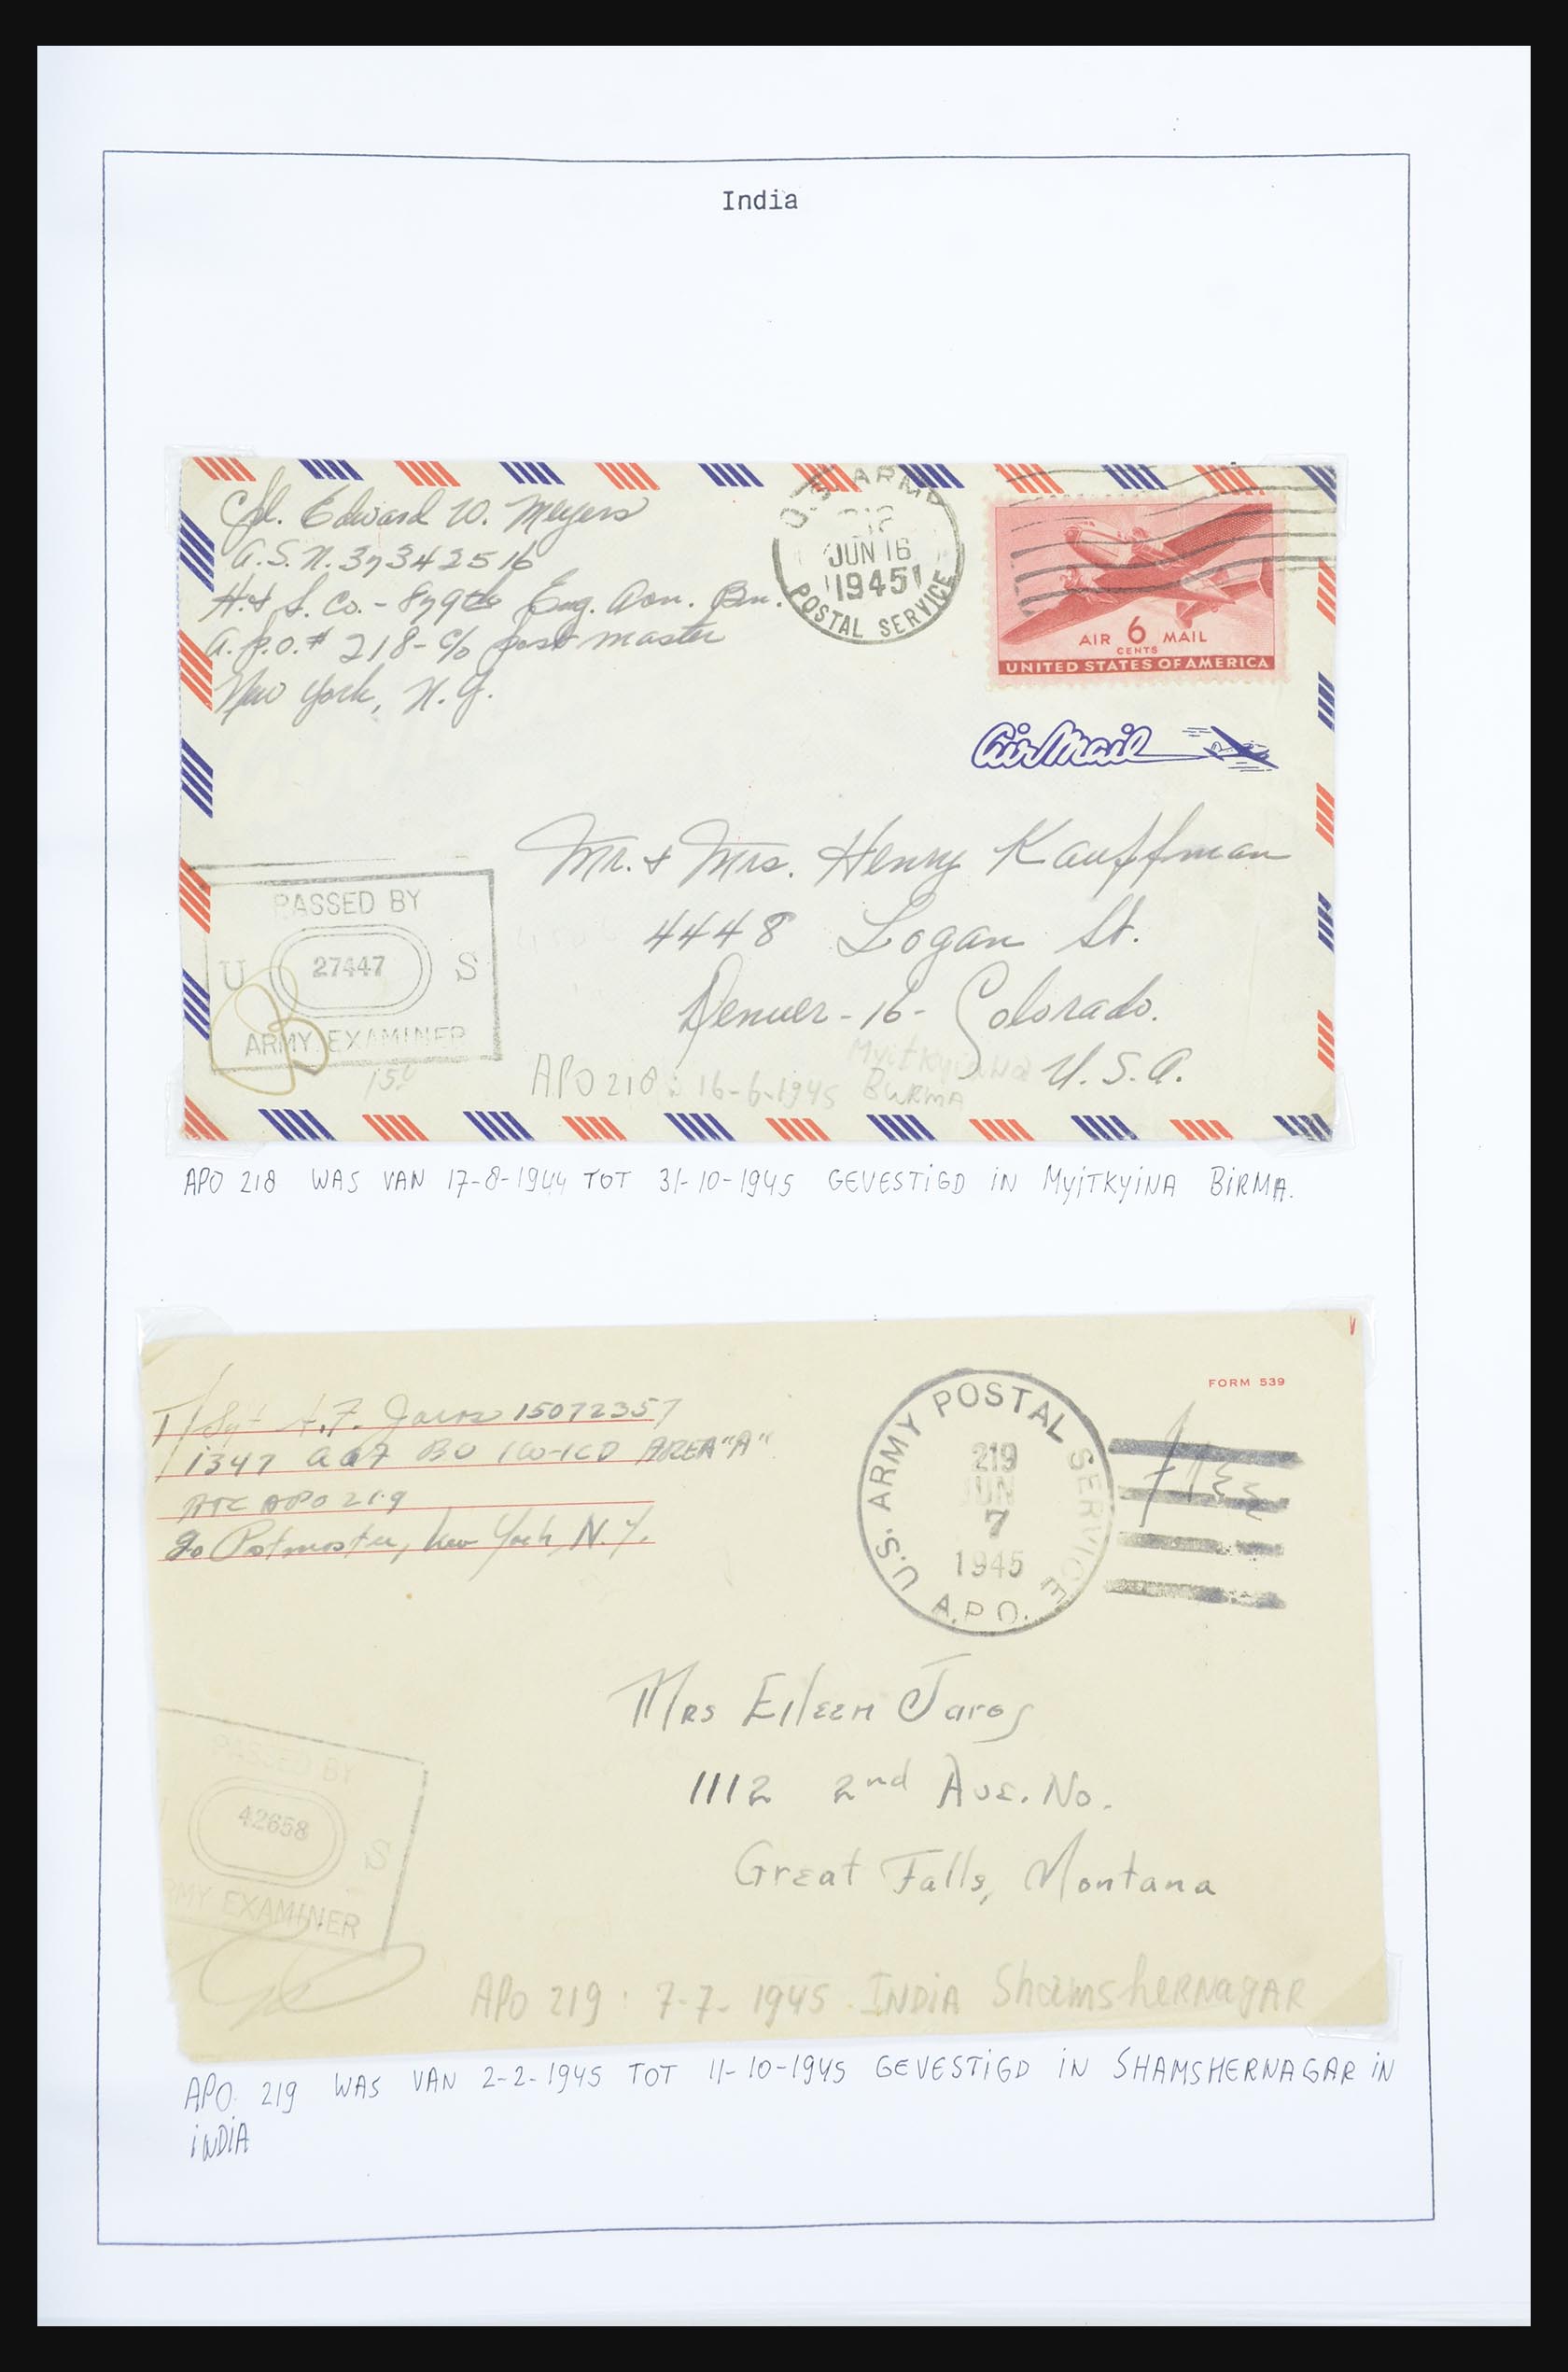 India
Cpl. Edward W. Meyers
A.S.N. 37342516
H.& S. Co. - 879th Eng. Avn. Bn.
A.P.O. # 218 - c/o Postmaster
New York, N.Y.
U.S. ARMY
JUN 16
1945
POSTAL SERVICE
AIR 6 MAIL
CENTS
UNITED STATES OF AMERICA
Air Mail
Mr. & Mrs. Henry Kauffman
4448 Logan St.
Denver - 16 - Colorado.
U.S.A.
PASSED BY
U 27447 S
ARMY EXAMINER
APO 218 : 16-6-1945 Myitkyina
BURMA
APO 218 WAS VAN 17-8-1944 TOT 31-10-1945 GEVESTIGD IN MyiTKyiNA BIRMA.
FORM 539
T/Sgt A.F. Jaros 15072357
1347 AAF BU ICW-ICD AREA "A"
ATC APO 219
c/o Postmaster, New York, N.Y.
U.S. ARMY POSTAL SERVICE
219
JUN
7
1945
A.P.O.
Free
Mrs Eileen Jaros
1112 2nd Ave. No.
Great Falls, Montana
PASSED BY
42658 S
RMY EXAMINER
APO 219 : 7-7-1945 INDIA ShamshERNagAR
APO 219 WAS VAN 2-2-1945 TOT 11-10-1945 GEVESTIGD IN SHAMSHERNAGAR IN
INDIA